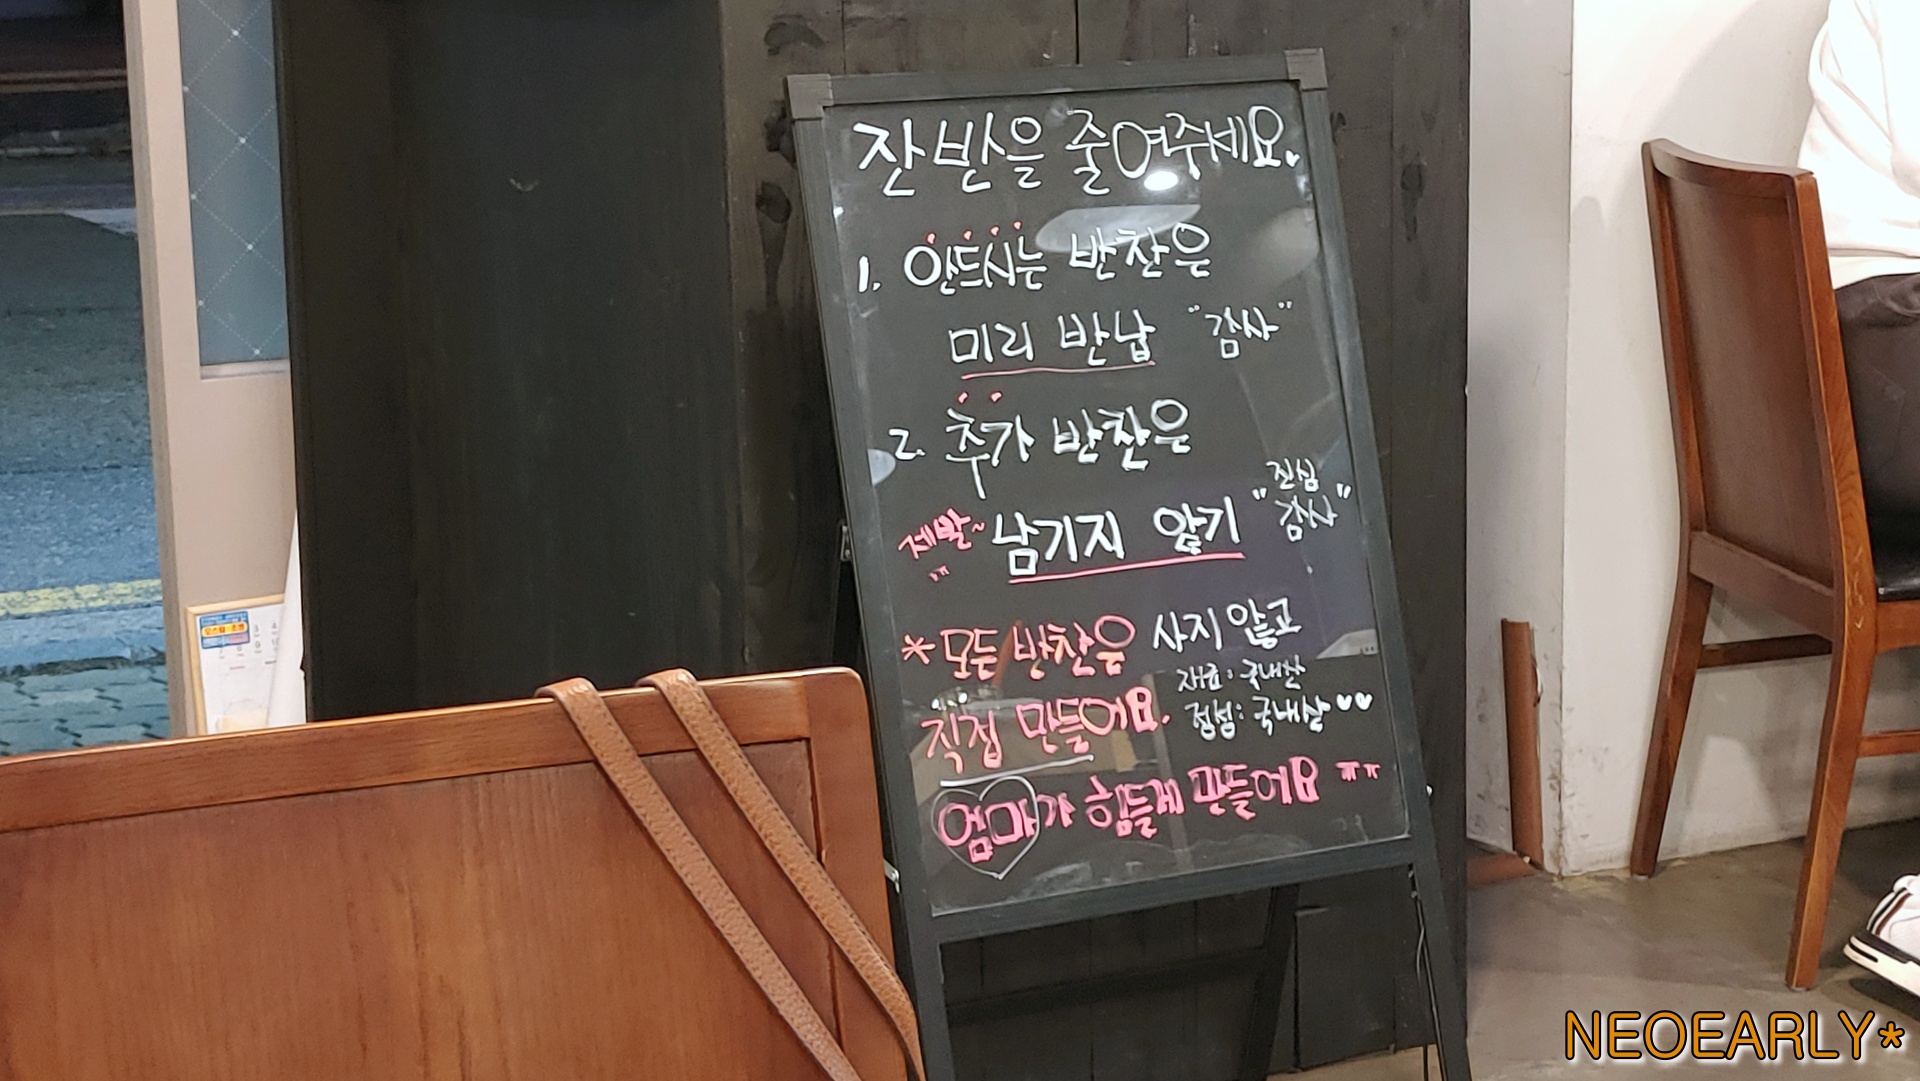 잔반을 줄여주세요.
1. 안드시는 반찬은
미리 반납 "감사"
2. 추가 반찬은
제발~ 남기지 않기 "진심 감사"
ㅠㅠ
*모든 반찬은 사지 않고
직접 만들어요.
재료: 국내산
정성: 국내산 ♥♥
엄마가 힘들게 만들어요 ㅠㅠ
NEOEARLY*